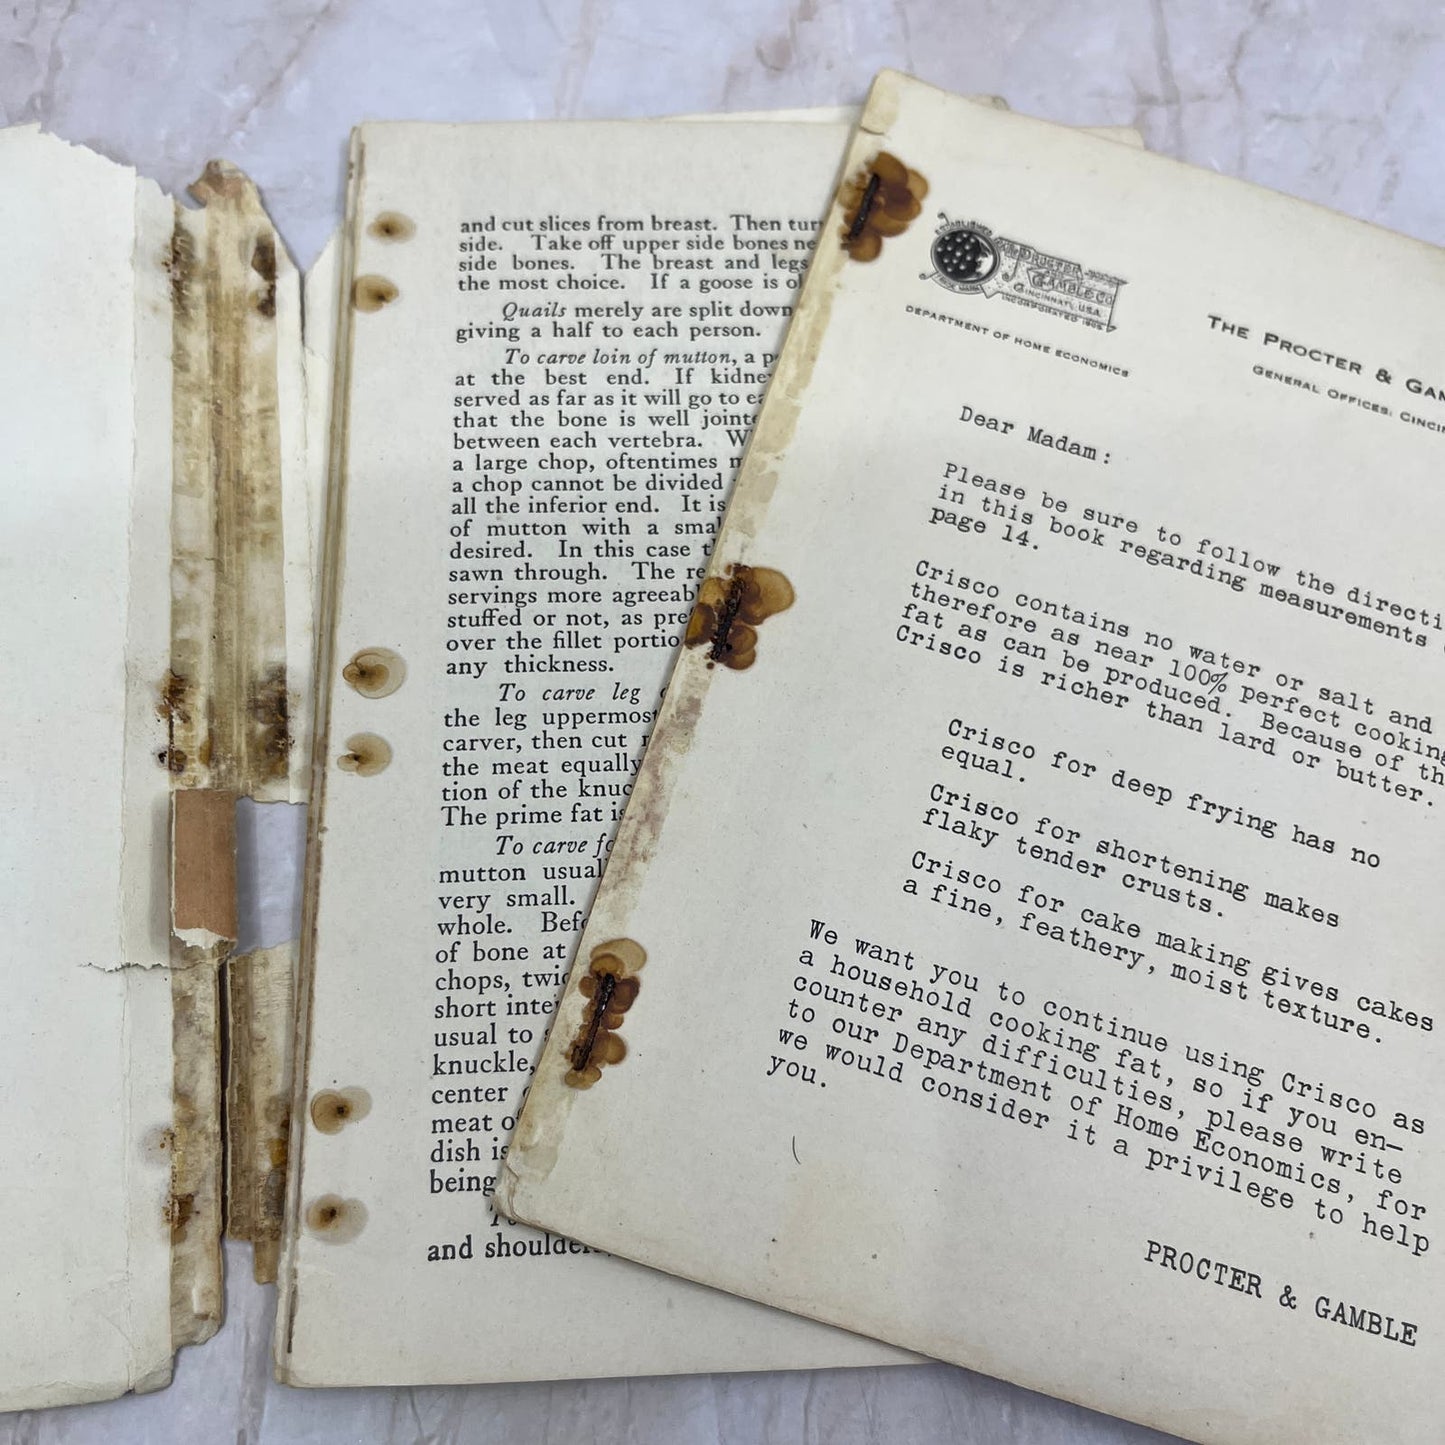 and cut slices from breast. Then turn
side. Take off upper side bones
side bones. The breast and legs
the most choice. If a goose is
Quails merely are split down
giving a half to each person.
To carve loin of mutton, a
at the best end. If
served as far as it will go to
that the bone is well
between each vertebra.
a large chop, oftentimes
a chop cannot be divided
all the inferior end. It is
of mutton with a
desired. In this case
sawn through. The
servings more
stuffed or not, as
over the fillet
any thickness.
To carve leg
the leg uppermost
carver, then cut
the meat equally
tion of the
The prime fat is
To carve
mutton
very small.
whole.
of bone at
chops,
short
usual to
knuckle,
center
meat
dish is
being
and
ESTABLISHED
TRADE MARK
THE PROCTER
& GAMBLE CO.
CINCINNATI, U.S.A.
INCORPORATED 1905
DEPARTMENT OF HOME ECONOMICS
THE PROCTER &
GENERAL OFFICES,
Dear Madam:
Please be sure to follow the
in this book regarding measurements
page 14.
Crisco contains no water or salt and
therefore as near 100% perfect cooking
fat as can be produced. Because of
Crisco is richer than lard or butter.
Crisco for deep frying has no
equal.
Crisco for shortening makes
flaky tender crusts.
Crisco for cake making gives cakes
a fine, feathery, moist texture.
We want you to continue using Crisco as
a household cooking fat, so if you en-
counter any difficulties, please write
to our Department of Home Economics, for
we would consider it a privilege to help
you.
PROCTER & GAMBLE